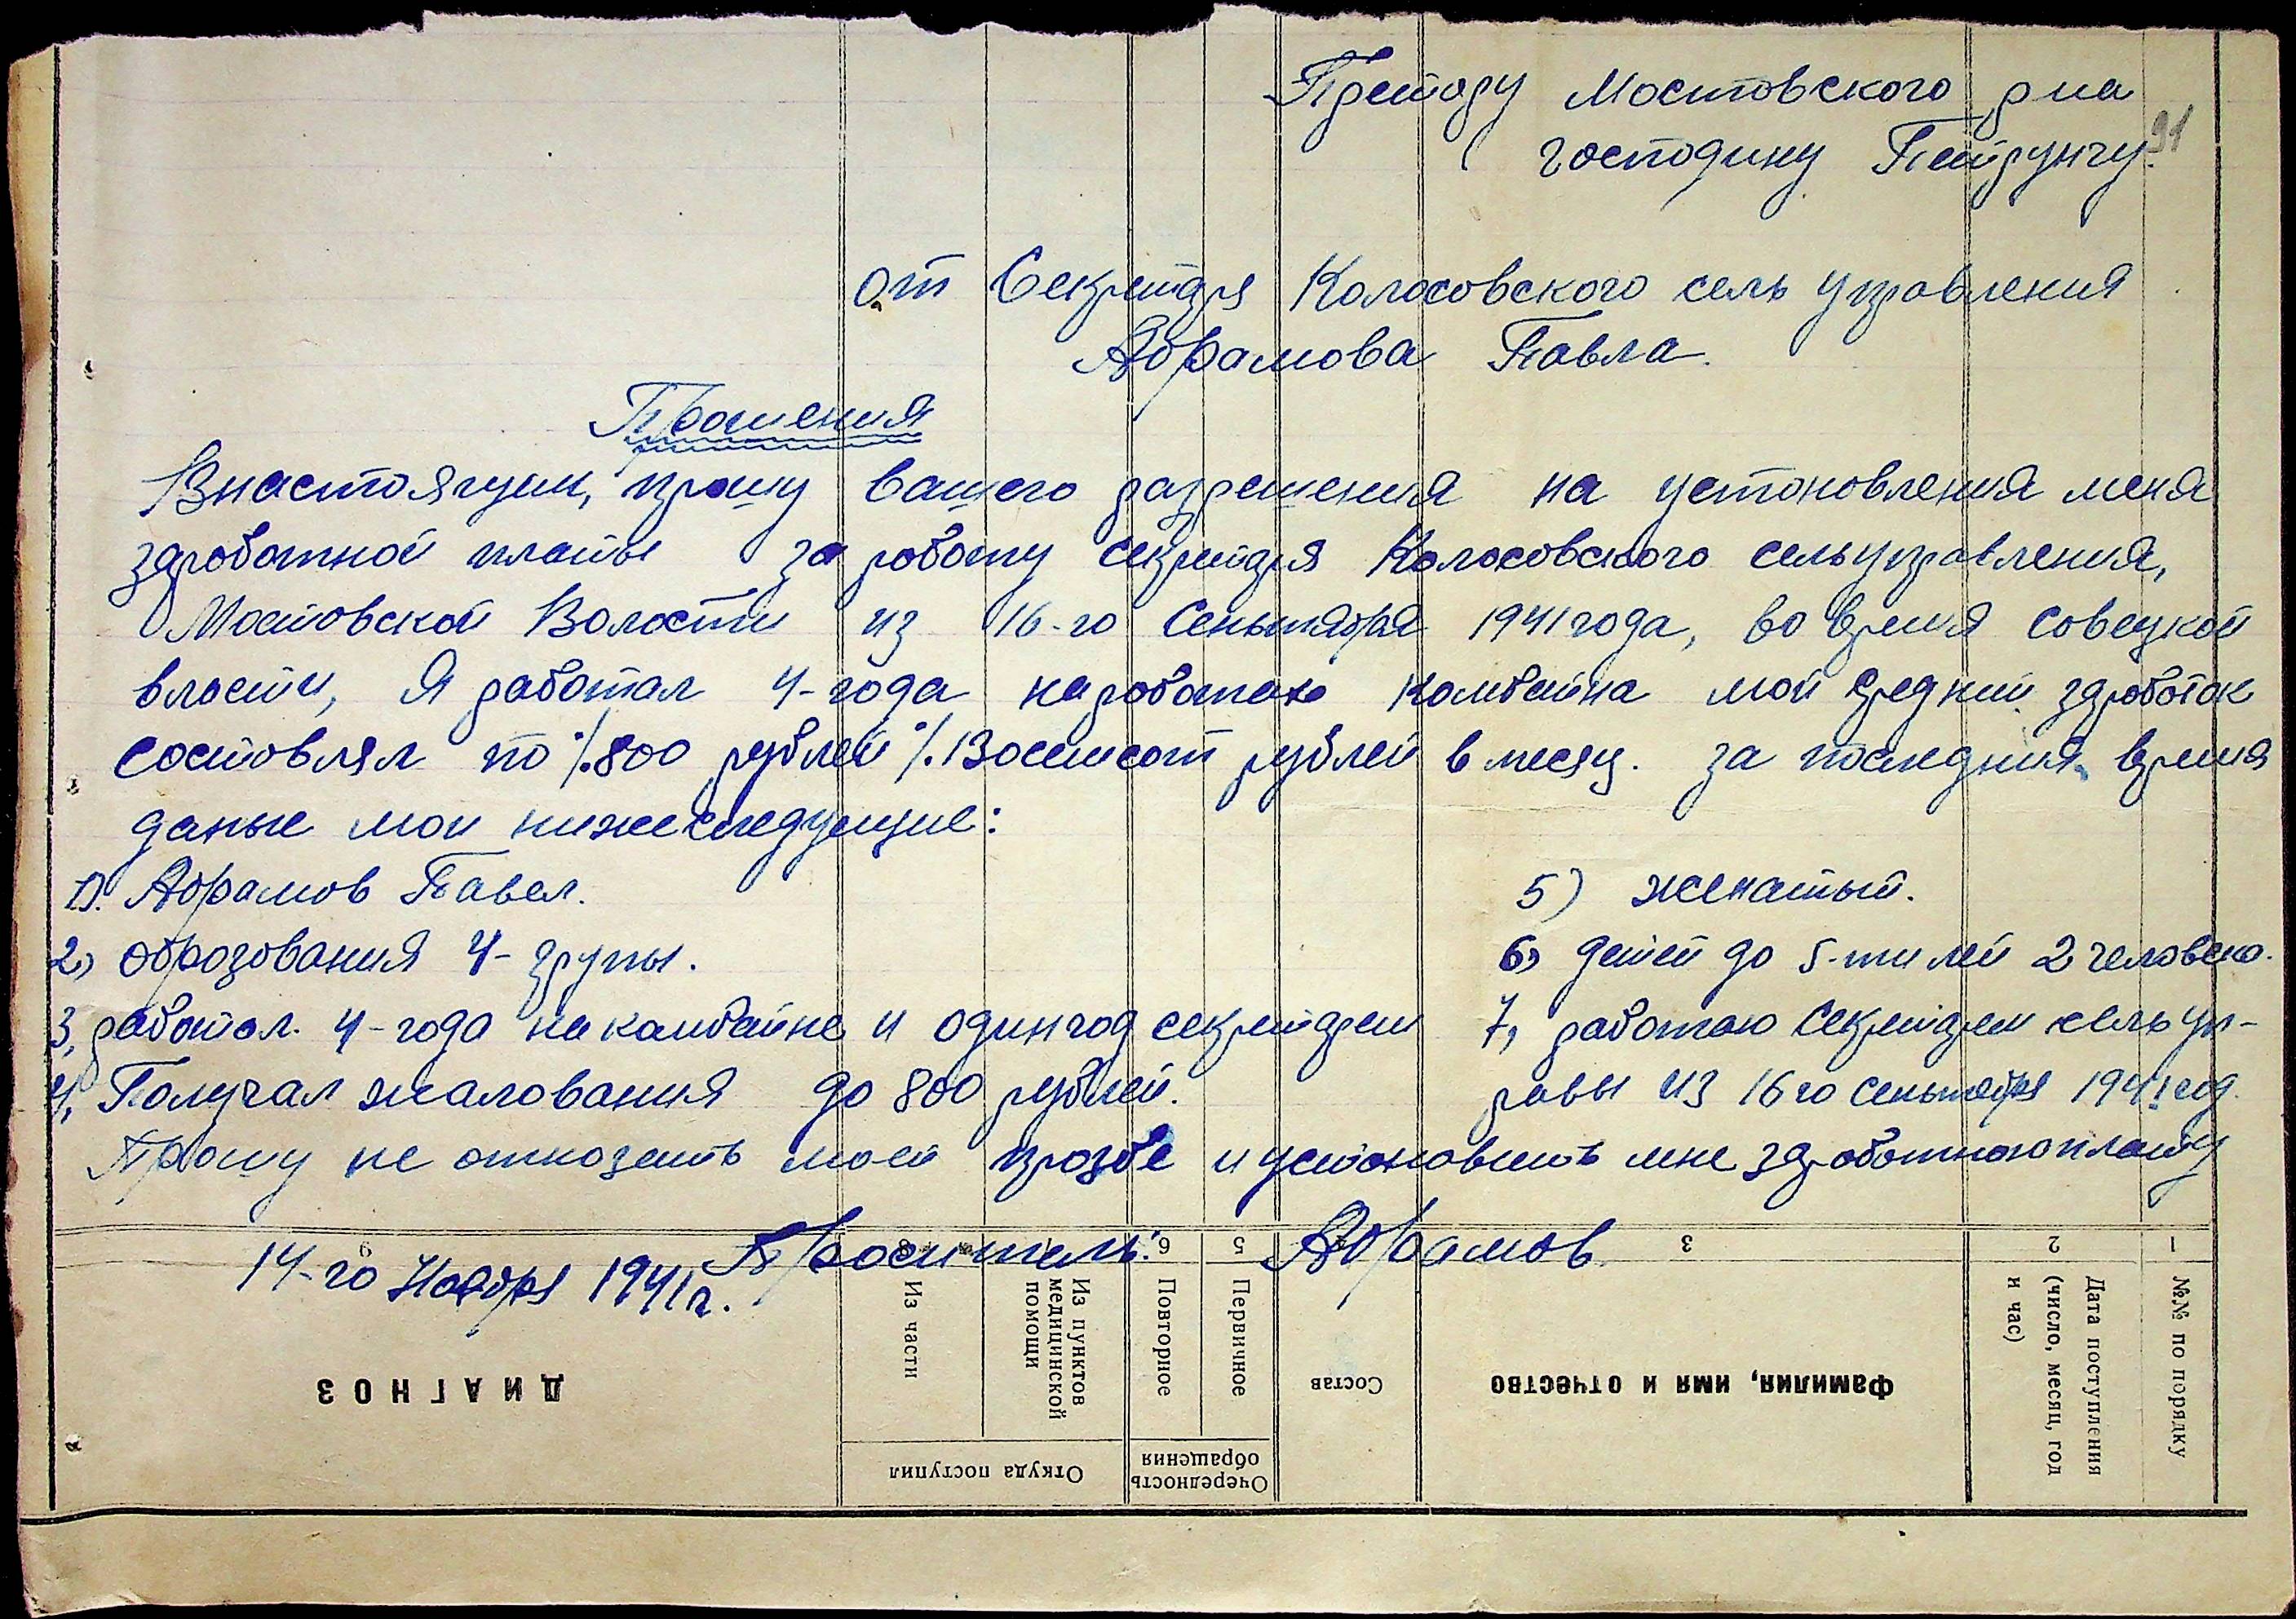 Претору Мостовского р на
91
господину Петрунчу.
от Секретаря Колосовского сель управления
Абрамова Павла.
Прошения
Внастоящим, прошу вашего разрешения на устоновления меня
зароботной платы за роботу секретаря Колосовского сельуправления,
Мостовской Волости из 16-го Сеньтября 1941 года, во время совецкой
власти, Я работал 4-года на роботах комбайна мой средний зароботок
состовлял по ./.800 рублей ./. Восемсот рублей в месяц. за последния время
даные мои нижеследующие:
1). Абрамов Павел.
2) оброзования 4- групы.
3, работал. 4-года на комбайне и один год секретарем
4, Получал жалования до 800 рублей.
5) женатый.
6) детей до 5-ти лет 2 человека.
7, работаю Секретарем сель уп-
равы из 16 го сеньтября 1941 год.
Прошу не отказать моей прозбе и устоновить мне зароботною плату
Проситель: Абрамов.
14-го Ноября 1941 г.
1
2
3
5
6
8
9
№№ по порядку
Дата поступления
(число, месяц, год
и час)
Фамилия, имя и отчество
Состав
Очередность
обращения
Первичное
Повторное
Откуда поступил
Из пунктов
медицинской
помощи
Из части
ДИАГНОЗ